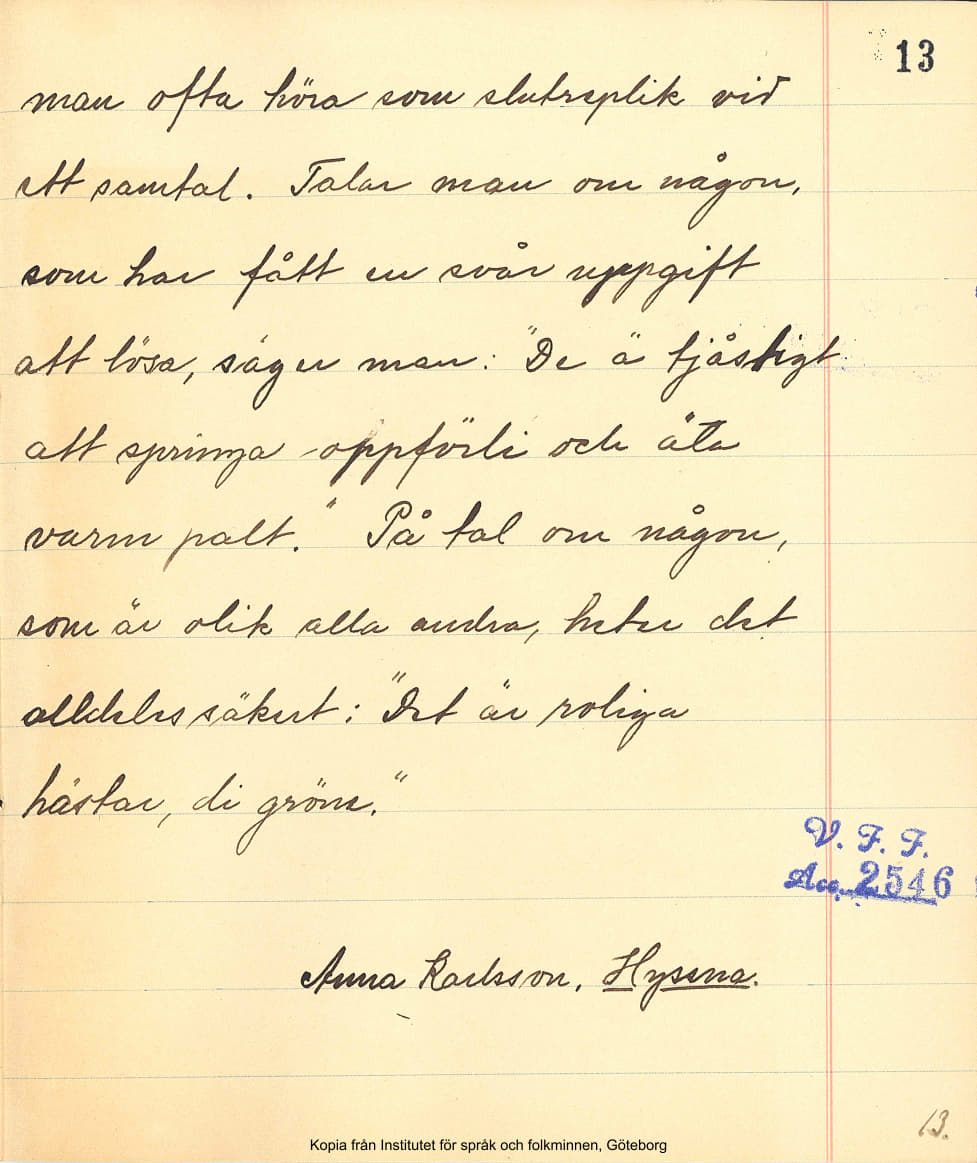 13
man ofta höra som slutreplik vid
ett samtal. Talar man om någon,
som har fått en svår uppgift
att lösa, säger man: "De ä tjåstigt
att springa oppförli och äta
varm palt." På tal om någon,
som är olik alla andra, heter det
alldeles säkert: "Det är roliga
hästar, di gröna."
V. F. F.
Acc. 2546
Anna Karlsson, Hyssna.
13.
Kopia från Institutet för språk och folkminnen, Göteborg